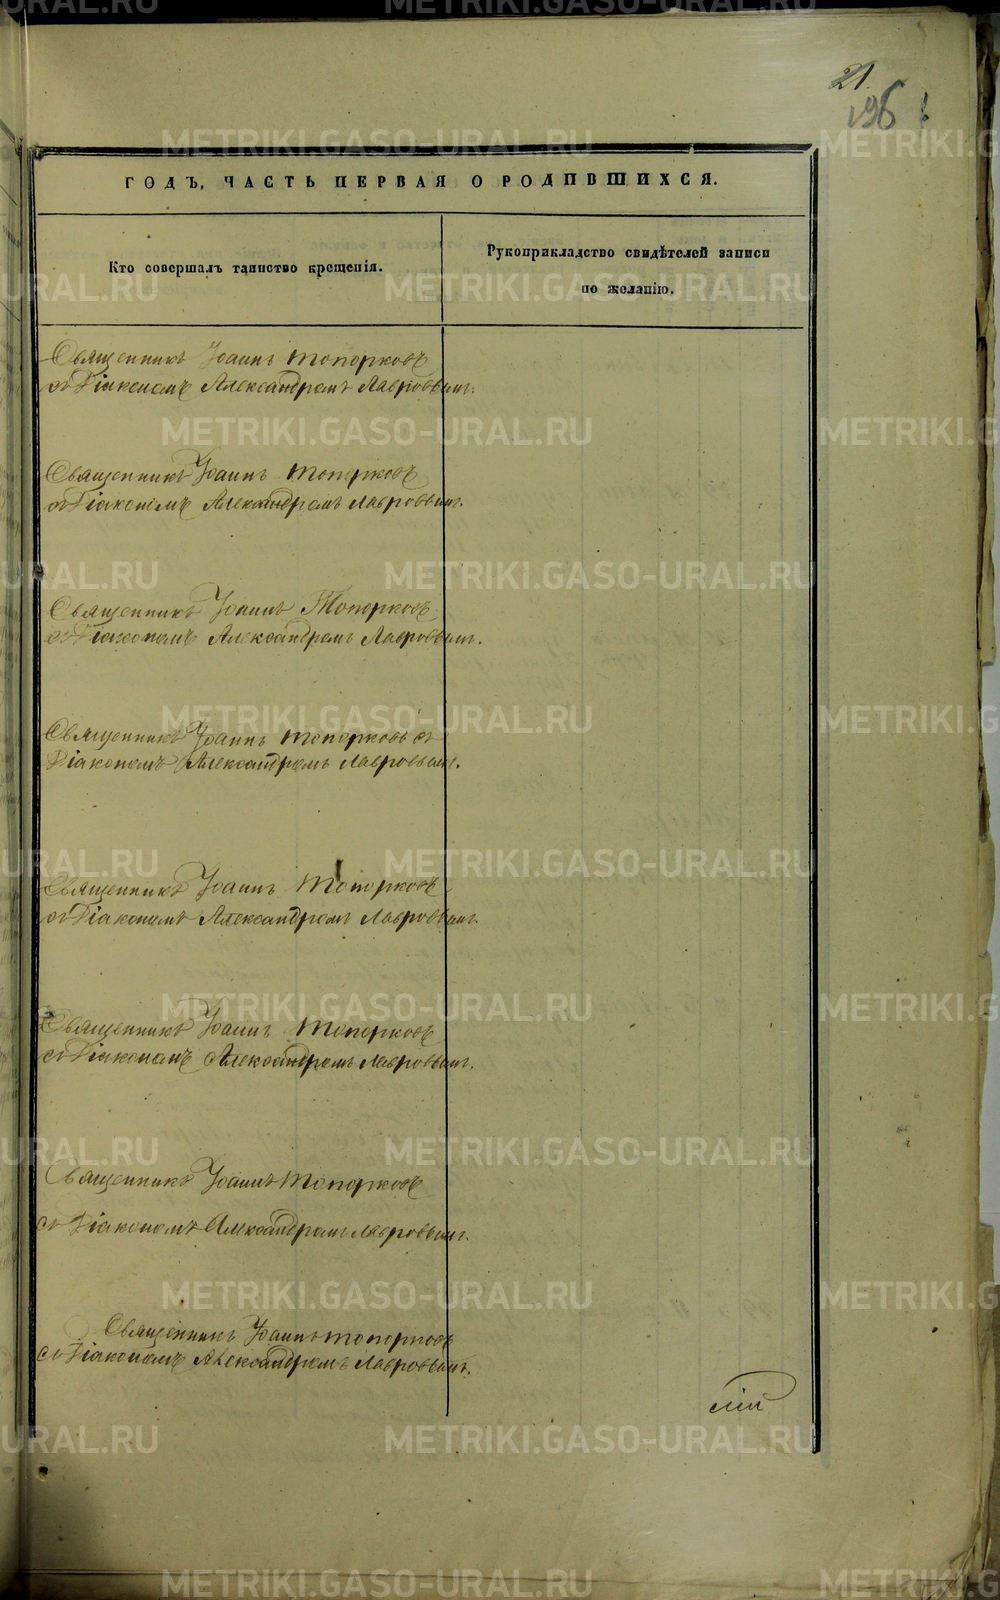 21.
196
ГОДЪ, ЧАСТЬ ПЕРВАЯ О РОДИВШИХСЯ.
Кто совершалъ таинство крещенія.
Рукоприкладство свидѣтелей записи
по желанію.
Священникъ Іоаннъ Топорковъ
съ Діакономъ Александромъ Лавровымъ.
Священникъ Іоаннъ Топорковъ
съ Діакономъ Александромъ Лавровымъ.
Священникъ Іоаннъ Топорковъ
съ Діакономъ Александромъ Лавровымъ.
Священникъ Іоаннъ Топорковъ съ
Діакономъ Александромъ Лавровымъ.
Священникъ Іоаннъ Топорковъ
съ Діакономъ Александромъ Лавровымъ.
Священникъ Іоаннъ Топорковъ
съ Діакономъ Александромъ Лавровымъ.
Священникъ Іоаннъ Топорковъ
съ Діакономъ Александромъ Лавровымъ.
Священникъ Іоаннъ Топорковъ
съ Діакономъ Александромъ Лавровымъ.
METRIKI.GASO-URAL.RU